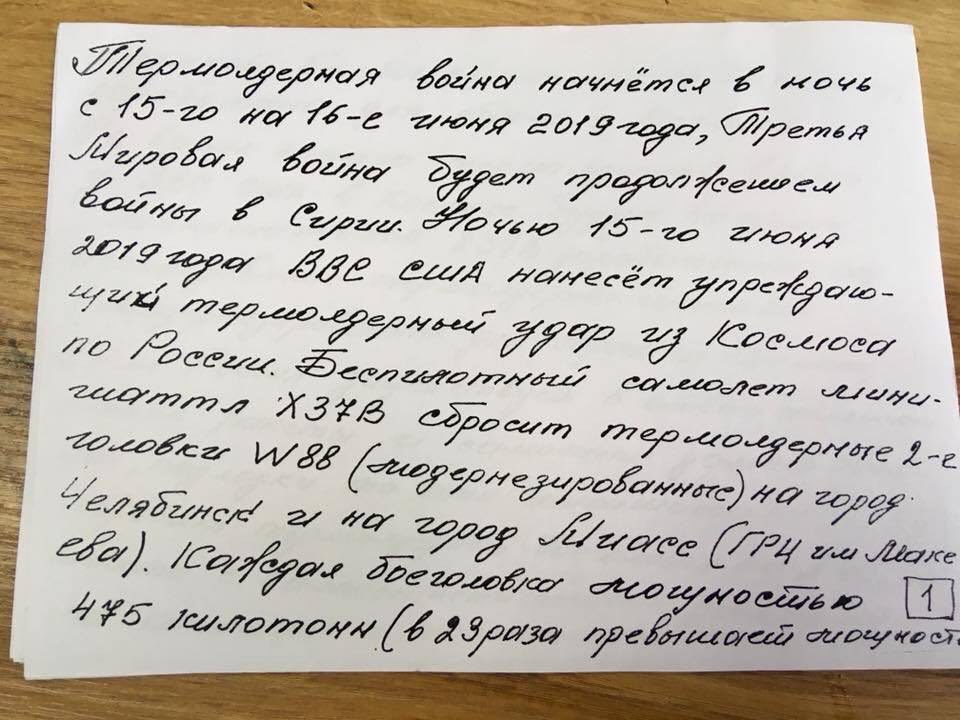 Термоядерная война начнётся в ночь
с 15-го на 16-е июня 2019 года, Третья
Мировая война будет продолжением
войны в Сирии. Ночью 15-го июня
2019 года ВВС США нанесёт упреждаю-
щий термоядерный удар из Космоса
по России. Беспилотный самолет мини-
шаттл X37B сбросит термоядерные 2-е
головки W88 (модернезированные) на город
Челябинск и на город Миасс (ГРЦ им Маке
ева). Каждая боеголовка мощностью
475 килотонн (в 23 раза превышает мощность
1